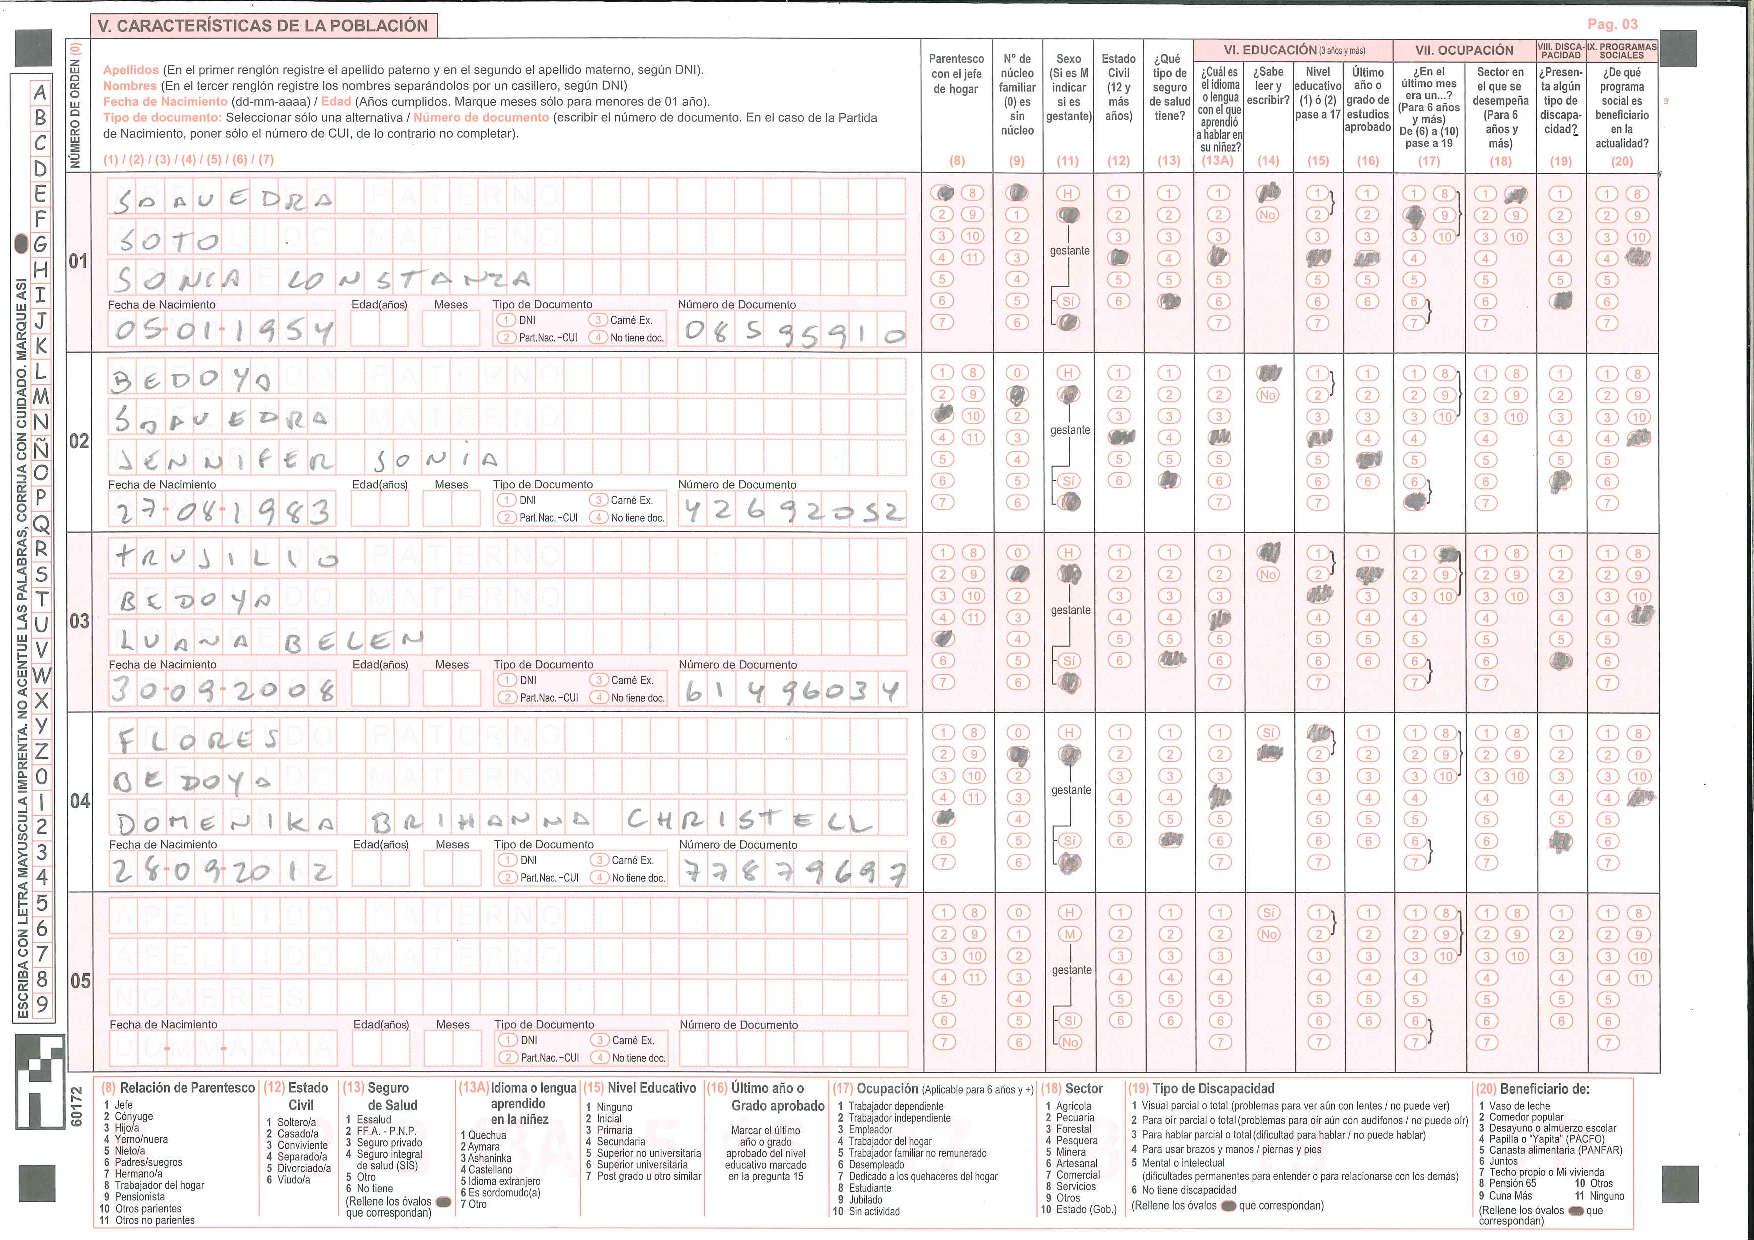 V. CARACTERÍSTICAS DE LA POBLACIÓN
Pag. 03
NÚMERO DE ORDEN (0)
Apellidos (En el primer renglón registre el apellido paterno y en el segundo el apellido materno, según DNI).
Nombres (En el tercer renglón registre los nombres separándolos por un casillero, según DNI)
Fecha de Nacimiento (dd-mm-aaaa) / Edad (Años cumplidos. Marque meses sólo para menores de 01 año).
Tipo de documento: Seleccionar sólo una alternativa / Número de documento (escribir el número de documento. En el caso de la Partida
de Nacimiento, poner sólo el número de CUI, de lo contrario no completar).
(1) / (2) / (3) / (4) / (5) / (6) / (7)
Parentesco con el jefe de hogar (8)
N° de núcleo familiar (0) es sin núcleo (9)
Sexo (Si es M indicar si es gestante) (11)
Estado Civil (12 y más años) (12)
¿Qué tipo de seguro de salud tiene? (13)
VI. EDUCACIÓN (3 años y más)
¿Cuál es el idioma o lengua con el que aprendió a hablar en su niñez? (13A)
¿Sabe leer y escribir? (14)
Nivel educativo (1) ó (2) pase a 17 (15)
Último año o grado de estudios aprobado (16)
VII. OCUPACIÓN
¿En el último mes era un...? (Para 6 años y más) De (6) a (10) pase a 19 (17)
Sector en el que se desempeña (Para 6 años y más) (18)
VIII. DISCAPACIDAD
¿Presenta algún tipo de discapacidad? (19)
IX. PROGRAMAS SOCIALES
¿De qué programa social es beneficiario en la actualidad? (20)
ESCRIBA CON LETRA MAYUSCULA IMPRENTA. NO ACENTUE LAS PALABRAS, CORRIJA CON CUIDADO. MARQUE ASI
A B C D E F G H I J K L M N Ñ O P Q R S T U V W X Y Z 0 1 2 3 4 5 6 7 8 9
01
SAAVEDRA
SOTO
SONIA CONSTANZA
Fecha de Nacimiento Edad(años) Meses Tipo de Documento Número de Documento
1 DNI 3 Carné Ex.
2 Part.Nac.-CUI 4 No tiene doc.
05-01-1954 08595910
gestante
02
BEDOYA
SAAVEDRA
JENNIFER SONIA
Fecha de Nacimiento Edad(años) Meses Tipo de Documento Número de Documento
1 DNI 3 Carné Ex.
2 Part.Nac.-CUI 4 No tiene doc.
27-08-1983 42692052
gestante
03
TRUJILLO
BEDOYA
LUANA BELEN
Fecha de Nacimiento Edad(años) Meses Tipo de Documento Número de Documento
1 DNI 3 Carné Ex.
2 Part.Nac.-CUI 4 No tiene doc.
30-09-2008 61496034
gestante
04
FLORES
BEDOYA
DOMENIKA BRIHANNA CHRISTELL
Fecha de Nacimiento Edad(años) Meses Tipo de Documento Número de Documento
1 DNI 3 Carné Ex.
2 Part.Nac.-CUI 4 No tiene doc.
28-09-2012 77879697
gestante
05
APELLIDO PATERNO
APELLIDO MATERNO
NOMBRES
Fecha de Nacimiento Edad(años) Meses Tipo de Documento Número de Documento
1 DNI 3 Carné Ex.
2 Part.Nac.-CUI 4 No tiene doc.
DD-MM-AAAA
gestante
60172
(8) Relación de Parentesco
1 Jefe
2 Cónyuge
3 Hijo/a
4 Yerno/nuera
5 Nieto/a
6 Padres/suegros
7 Hermano/a
8 Trabajador del hogar
9 Pensionista
10 Otros parientes
11 Otros no parientes
(12) Estado Civil
1 Soltero/a
2 Casado/a
3 Conviviente
4 Separado/a
5 Divorciado/a
6 Viudo/a
(13) Seguro de Salud
1 Essalud
2 FF.A. - P.N.P.
3 Seguro privado
4 Seguro integral
de salud (SIS)
5 Otro
6 No tiene
(Rellene los óvalos
que correspondan)
(13A) Idioma o lengua
aprendido
en la niñez
1 Quechua
2 Aymara
3 Ashaninka
4 Castellano
5 Idioma extranjero
6 Es sordomudo(a)
7 Otro
(15) Nivel Educativo
1 Ninguno
2 Inicial
3 Primaria
4 Secundaria
5 Superior no universitaria
6 Superior universitaria
7 Post grado u otro similar
(16) Último año o
Grado aprobado
Marcar el último
año o grado
aprobado del nivel
educativo marcado
en la pregunta 15
(17) Ocupación (Aplicable para 6 años y +)
1 Trabajador dependiente
2 Trabajador independiente
3 Empleador
4 Trabajador del hogar
5 Trabajador familiar no remunerado
6 Desempleado
7 Dedicado a los quehaceres del hogar
8 Estudiante
9 Jubilado
10 Sin actividad
(18) Sector
1 Agrícola
2 Pecuaria
3 Forestal
4 Pesquera
5 Minera
6 Artesanal
7 Comercial
8 Servicios
9 Otros
10 Estado (Gob.)
(19) Tipo de Discapacidad
1 Visual parcial o total (problemas para ver aún con lentes / no puede ver)
2 Para oir parcial o total (problemas para oir aún con audifonos / no puede oir)
3 Para hablar parcial o total (dificultad para hablar / no puede hablar)
4 Para usar brazos y manos / piernas y pies
5 Mental o intelectual
(dificultades permanentes para entender o para relacionarse con los demás)
6 No tiene discapacidad
(Rellene los óvalos que correspondan)
(20) Beneficiario de:
1 Vaso de leche
2 Comedor popular
3 Desayuno o almuerzo escolar
4 Papilla o "Yapita" (PACFO)
5 Canasta alimentaria (PANFAR)
6 Juntos
7 Techo propio o Mi vivienda
8 Pensión 65 10 Otros
9 Cuna Más 11 Ninguno
(Rellene los óvalos que
correspondan)